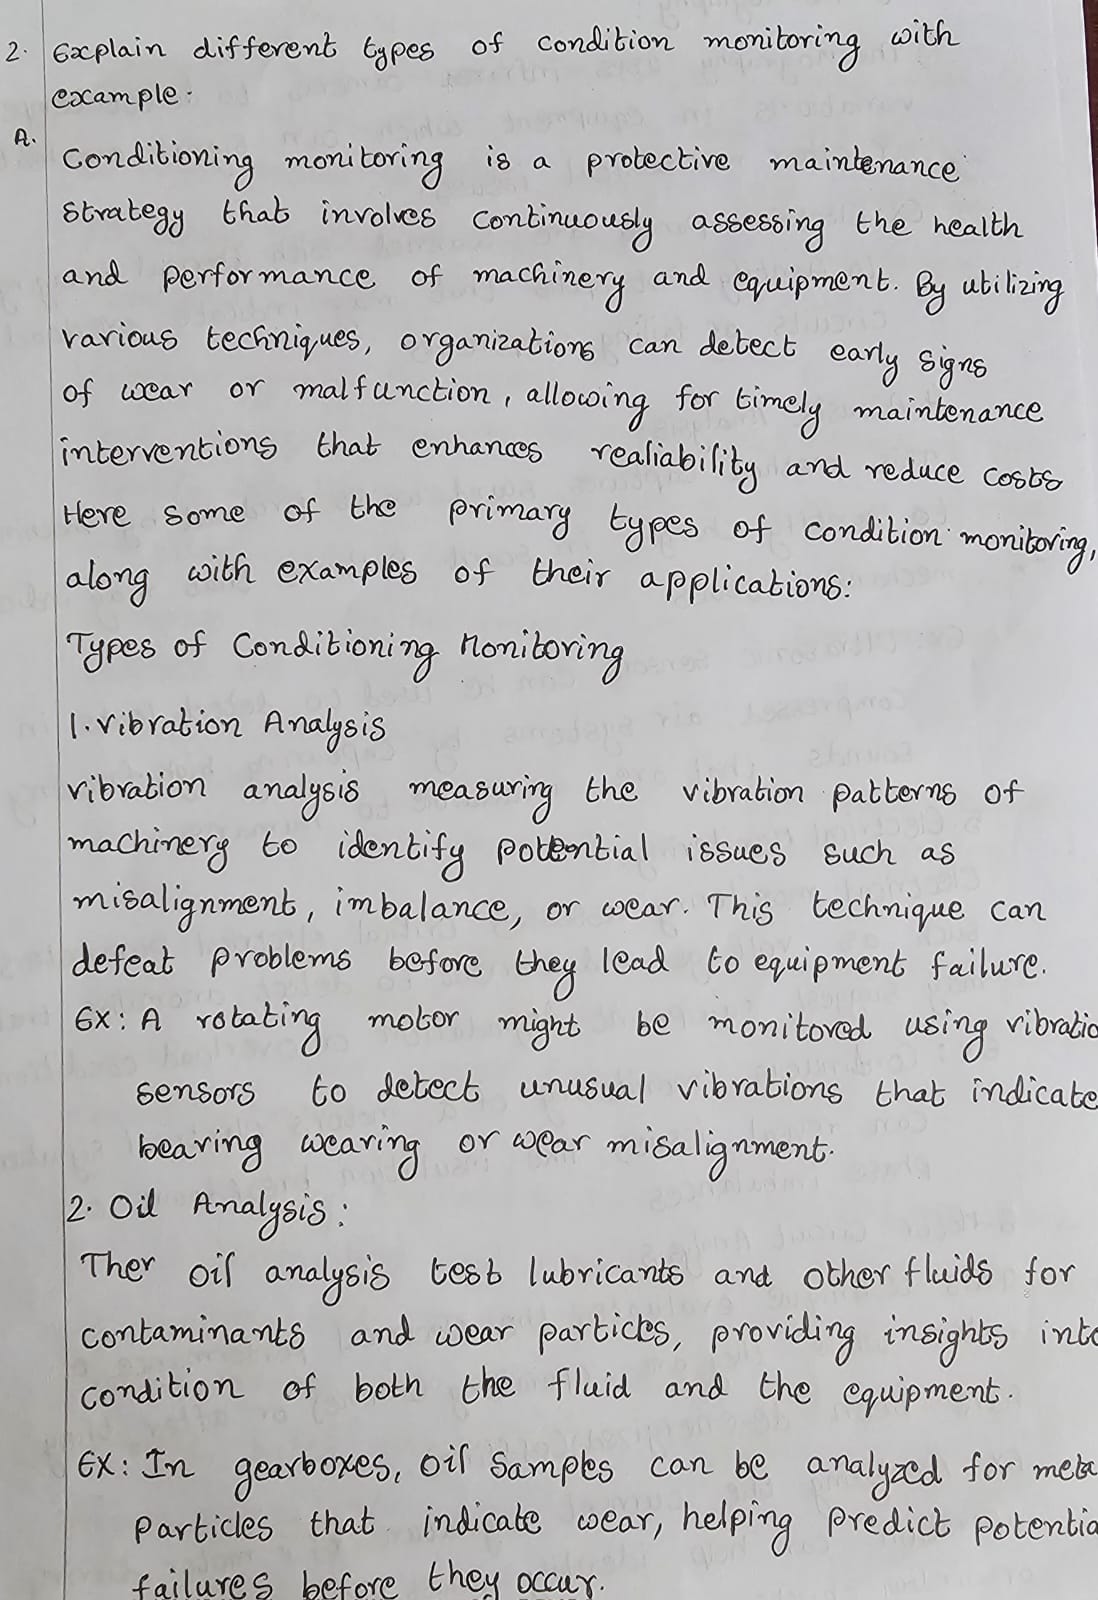 2. Explain different types of condition monitoring with
example.
A.
Conditioning monitoring is a protective maintenance
strategy that involves continuously assessing the health
and performance of machinery and equipment. By utilizing
various techniques, organizations can detect early signs
of wear or malfunction, allowing for timely maintenance
interventions that enhances realiability and reduce costs
Here some of the primary types of condition monitoring,
along with examples of their applications:
Types of Conditioning Monitoring
1. Vibration Analysis
vibration analysis measuring the vibration patterns of
machinery to identify potential issues such as
misalignment, imbalance, or wear. This technique can
defeat problems before they lead to equipment failure.
Ex: A rotating motor might be monitored using vibratio
sensors to detect unusual vibrations that indicate
bearing wearing or wear misalignment.
2. Oil Analysis:
Ther oil analysis test lubricants and other fluids for
contaminants and wear particles, providing insights into
condition of both the fluid and the equipment.
Ex: In gearboxes, oil samples can be analyzed for meta
particles that indicate wear, helping predict potentia
failures before they occur.